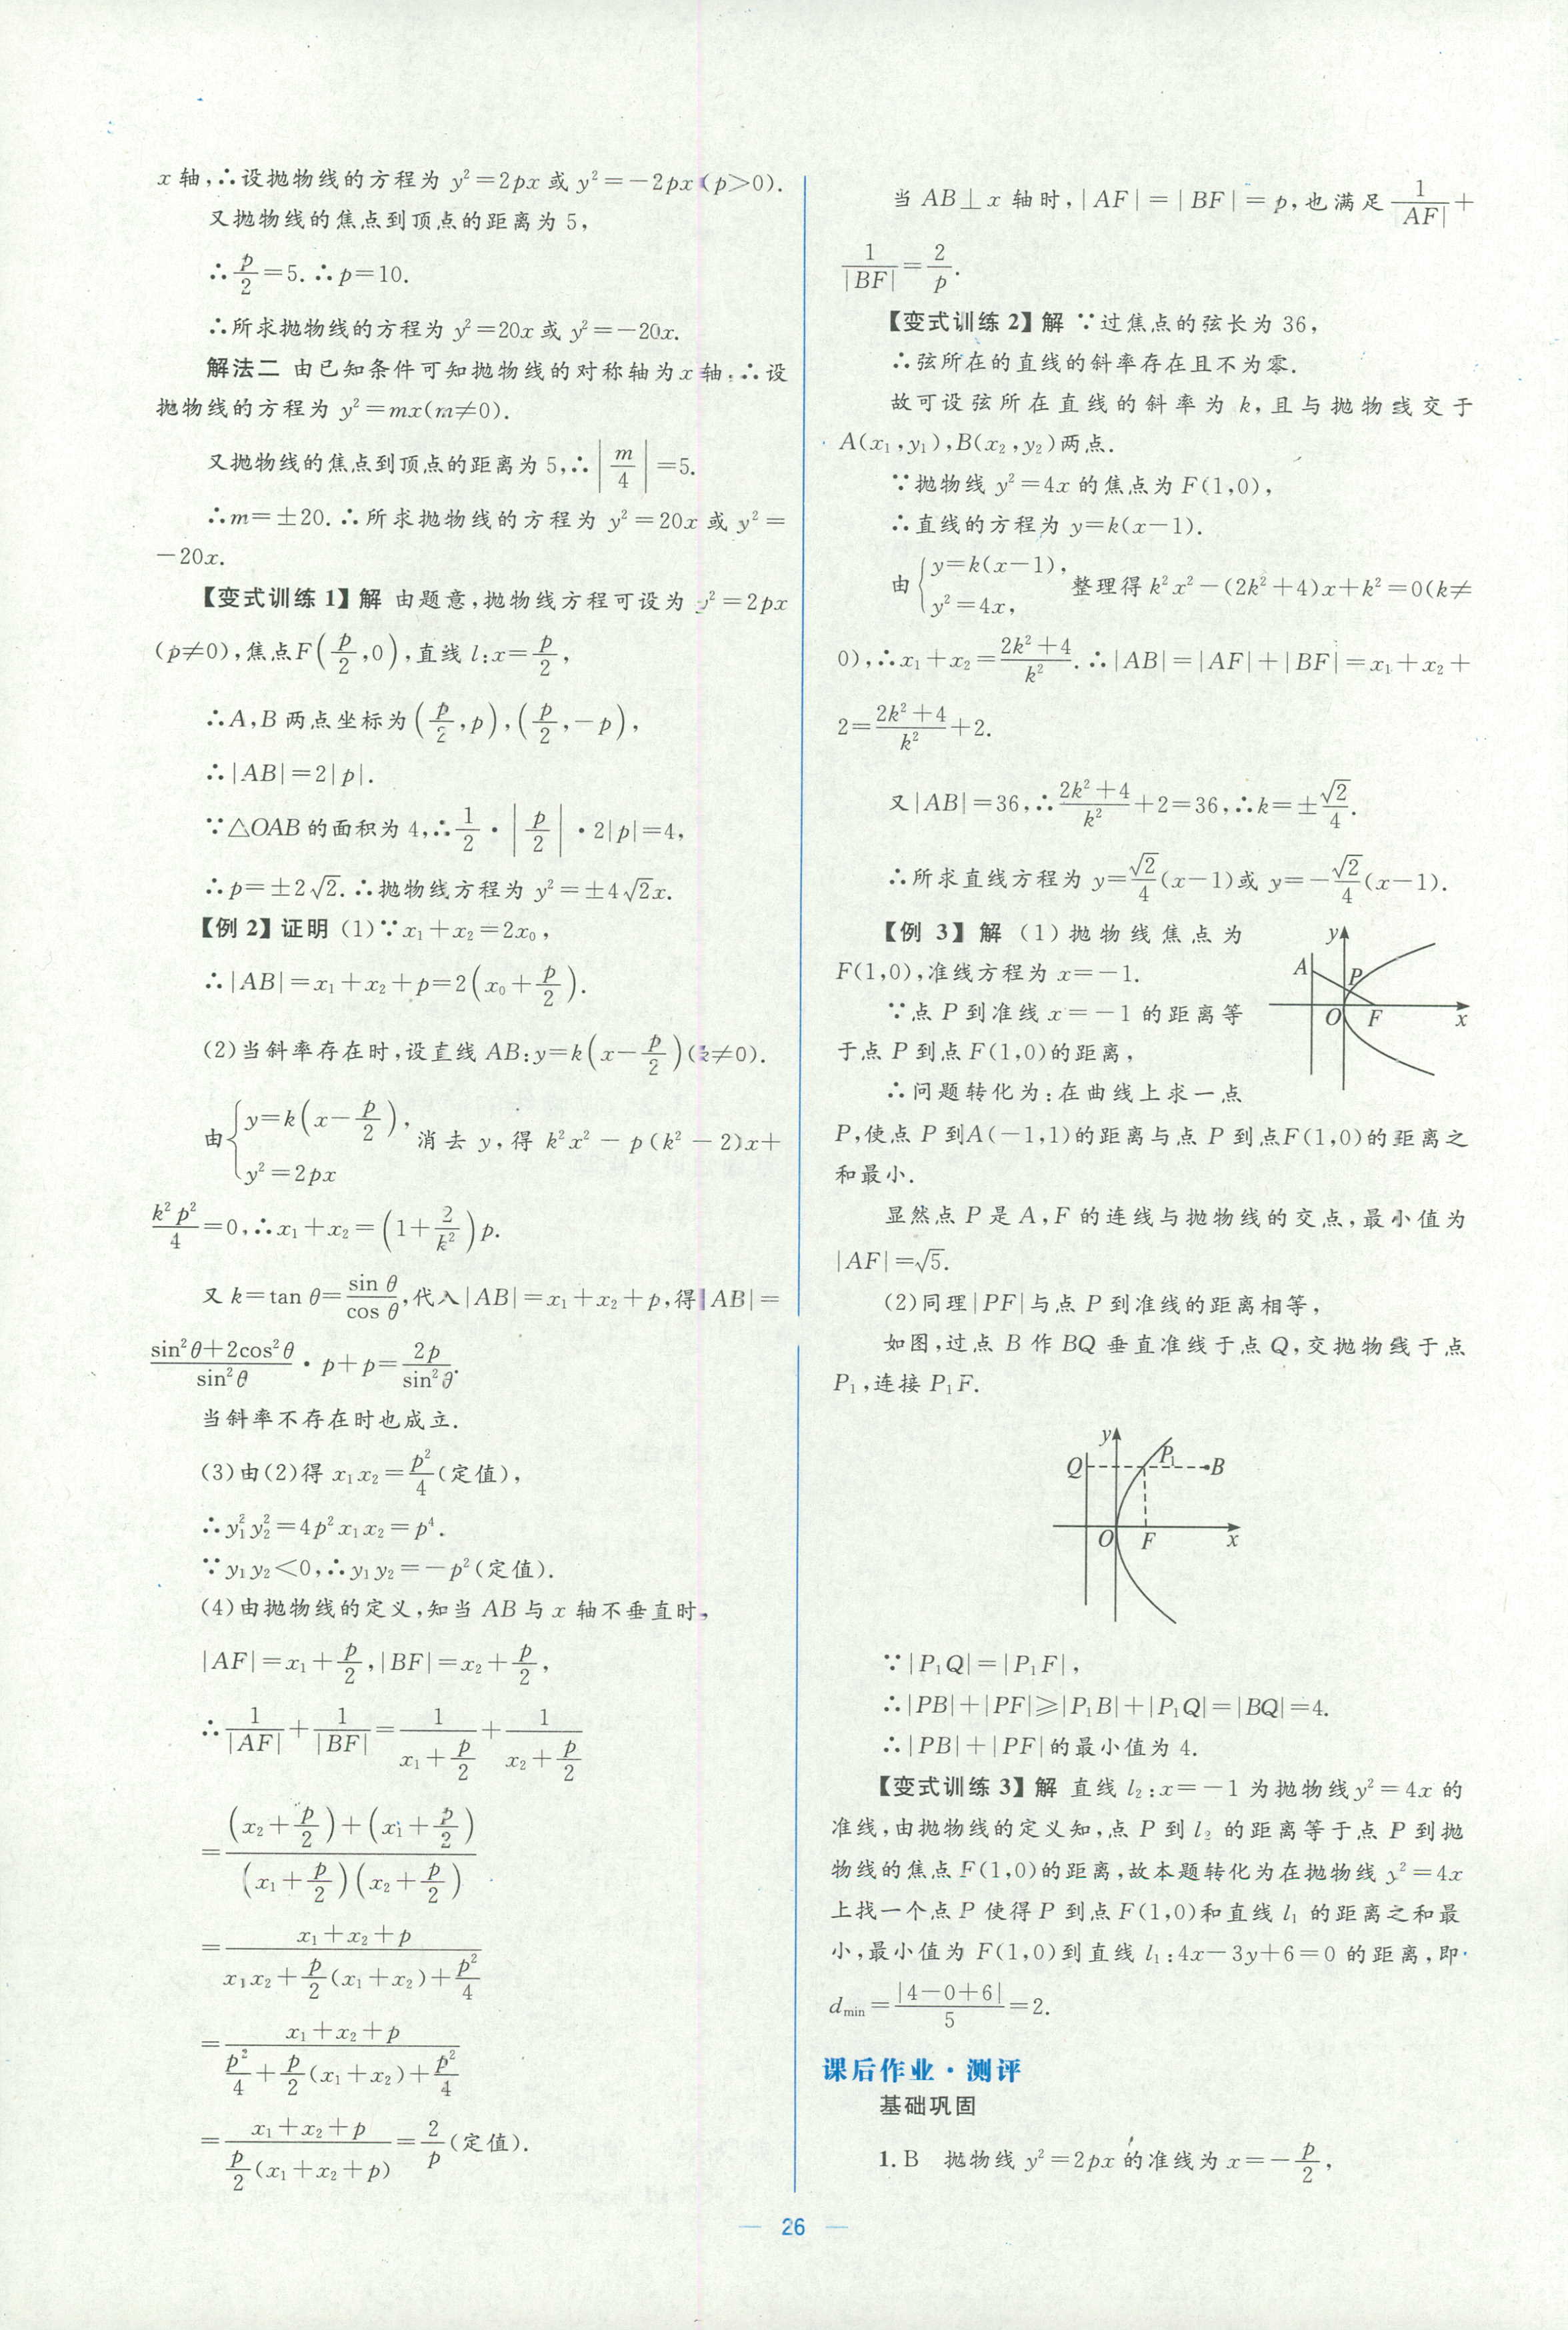 x 轴,∴设抛物线的方程为 y²=2px 或 y²=-2px(p>0).
又抛物线的焦点到顶点的距离为 5,
∴p/2=5.∴p=10.
∴所求抛物线的方程为 y²=20x 或 y²=-20x.
解法二 由已知条件可知抛物线的对称轴为 x 轴,∴设
抛物线的方程为 y²=mx(m≠0).
又抛物线的焦点到顶点的距离为 5,∴|m/4|=5.
∴m=±20.∴所求抛物线的方程为 y²=20x 或 y²=
-20x.
【变式训练 1】解 由题意,抛物线方程可设为 y²=2px
(p≠0),焦点F(p/2,0),直线 l:x=p/2,
∴A,B 两点坐标为(p/2,p),(p/2,-p),
∴|AB|=2|p|.
∵△OAB 的面积为 4,∴1/2·|p/2|·2|p|=4,
∴p=±2√2.∴抛物线方程为 y²=±4√2x.
【例 2】证明 (1)∵x₁+x₂=2x₀,
∴|AB|=x₁+x₂+p=2(x₀+p/2).
(2)当斜率存在时,设直线 AB:y=k(x-p/2)(k≠0).
由{y=k(x-p/2), y²=2px 消去 y,得 k²x²-p(k²-2)x+
k²p²/4=0,∴x₁+x₂=(1+2/k²)p.
又 k=tan θ=sin θ/cos θ,代入|AB|=x₁+x₂+p,得|AB|=
(sin²θ+2cos²θ)/sin²θ·p+p=2p/sin²θ.
当斜率不存在时也成立.
(3)由(2)得 x₁x₂=p²/4(定值),
∴y₁²y₂²=4p²x₁x₂=p⁴.
∵y₁y₂<0,∴y₁y₂=-p²(定值).
(4)由抛物线的定义,知当 AB 与 x 轴不垂直时,
|AF|=x₁+p/2,|BF|=x₂+p/2,
∴1/|AF|+1/|BF|=1/(x₁+p/2)+1/(x₂+p/2)
=((x₂+p/2)+(x₁+p/2))/((x₁+p/2)(x₂+p/2))
=(x₁+x₂+p)/(x₁x₂+p/2(x₁+x₂)+p²/4)
=(x₁+x₂+p)/(p²/4+p/2(x₁+x₂)+p²/4)
=(x₁+x₂+p)/(p/2(x₁+x₂+p))=2/p(定值).
当 AB⊥x 轴时,|AF|=|BF|=p,也满足1/|AF|+
1/|BF|=2/p.
【变式训练 2】解 ∵过焦点的弦长为 36,
∴弦所在的直线的斜率存在且不为零.
故可设弦所在直线的斜率为 k,且与抛物线交于
A(x₁,y₁),B(x₂,y₂)两点.
∵抛物线 y²=4x 的焦点为 F(1,0),
∴直线的方程为 y=k(x-1).
由{y=k(x-1), y²=4x, 整理得 k²x²-(2k²+4)x+k²=0(k≠
0),∴x₁+x₂=(2k²+4)/k².∴|AB|=|AF|+|BF|=x₁+x₂+
2=(2k²+4)/k²+2.
又|AB|=36,∴(2k²+4)/k²+2=36,∴k=±√2/4.
∴所求直线方程为 y=√2/4(x-1)或 y=-√2/4(x-1).
【例 3】解 (1)抛物线焦点为
F(1,0),准线方程为 x=-1.
∵点 P 到准线 x=-1 的距离等
于点 P 到点 F(1,0)的距离,
y
A
P
O
F
x
∴问题转化为:在曲线上求一点
P,使点 P 到A(-1,1)的距离与点 P 到点F(1,0)的距离之
和最小.
显然点 P 是 A,F 的连线与抛物线的交点,最小值为
|AF|=√5.
(2)同理|PF|与点 P 到准线的距离相等,
如图,过点 B 作 BQ 垂直准线于点 Q,交抛物线于点
P₁,连接 P₁F.
y
Q
P₁
B
O
F
x
∵|P₁Q|=|P₁F|,
∴|PB|+|PF|≥|P₁B|+|P₁Q|=|BQ|=4.
∴|PB|+|PF|的最小值为 4.
【变式训练 3】解 直线 l₂:x=-1 为抛物线y²=4x 的
准线,由抛物线的定义知,点 P 到 l₂ 的距离等于点 P 到抛
物线的焦点 F(1,0)的距离,故本题转化为在抛物线 y²=4x
上找一个点 P 使得 P 到点 F(1,0)和直线 l₁ 的距离之和最
小,最小值为 F(1,0)到直线 l₁:4x-3y+6=0 的距离,即
dmin=|4-0+6|/5=2.
课后作业·测评
基础巩固
1. B 抛物线 y²=2px 的准线为 x=-p/2,
— 26 —